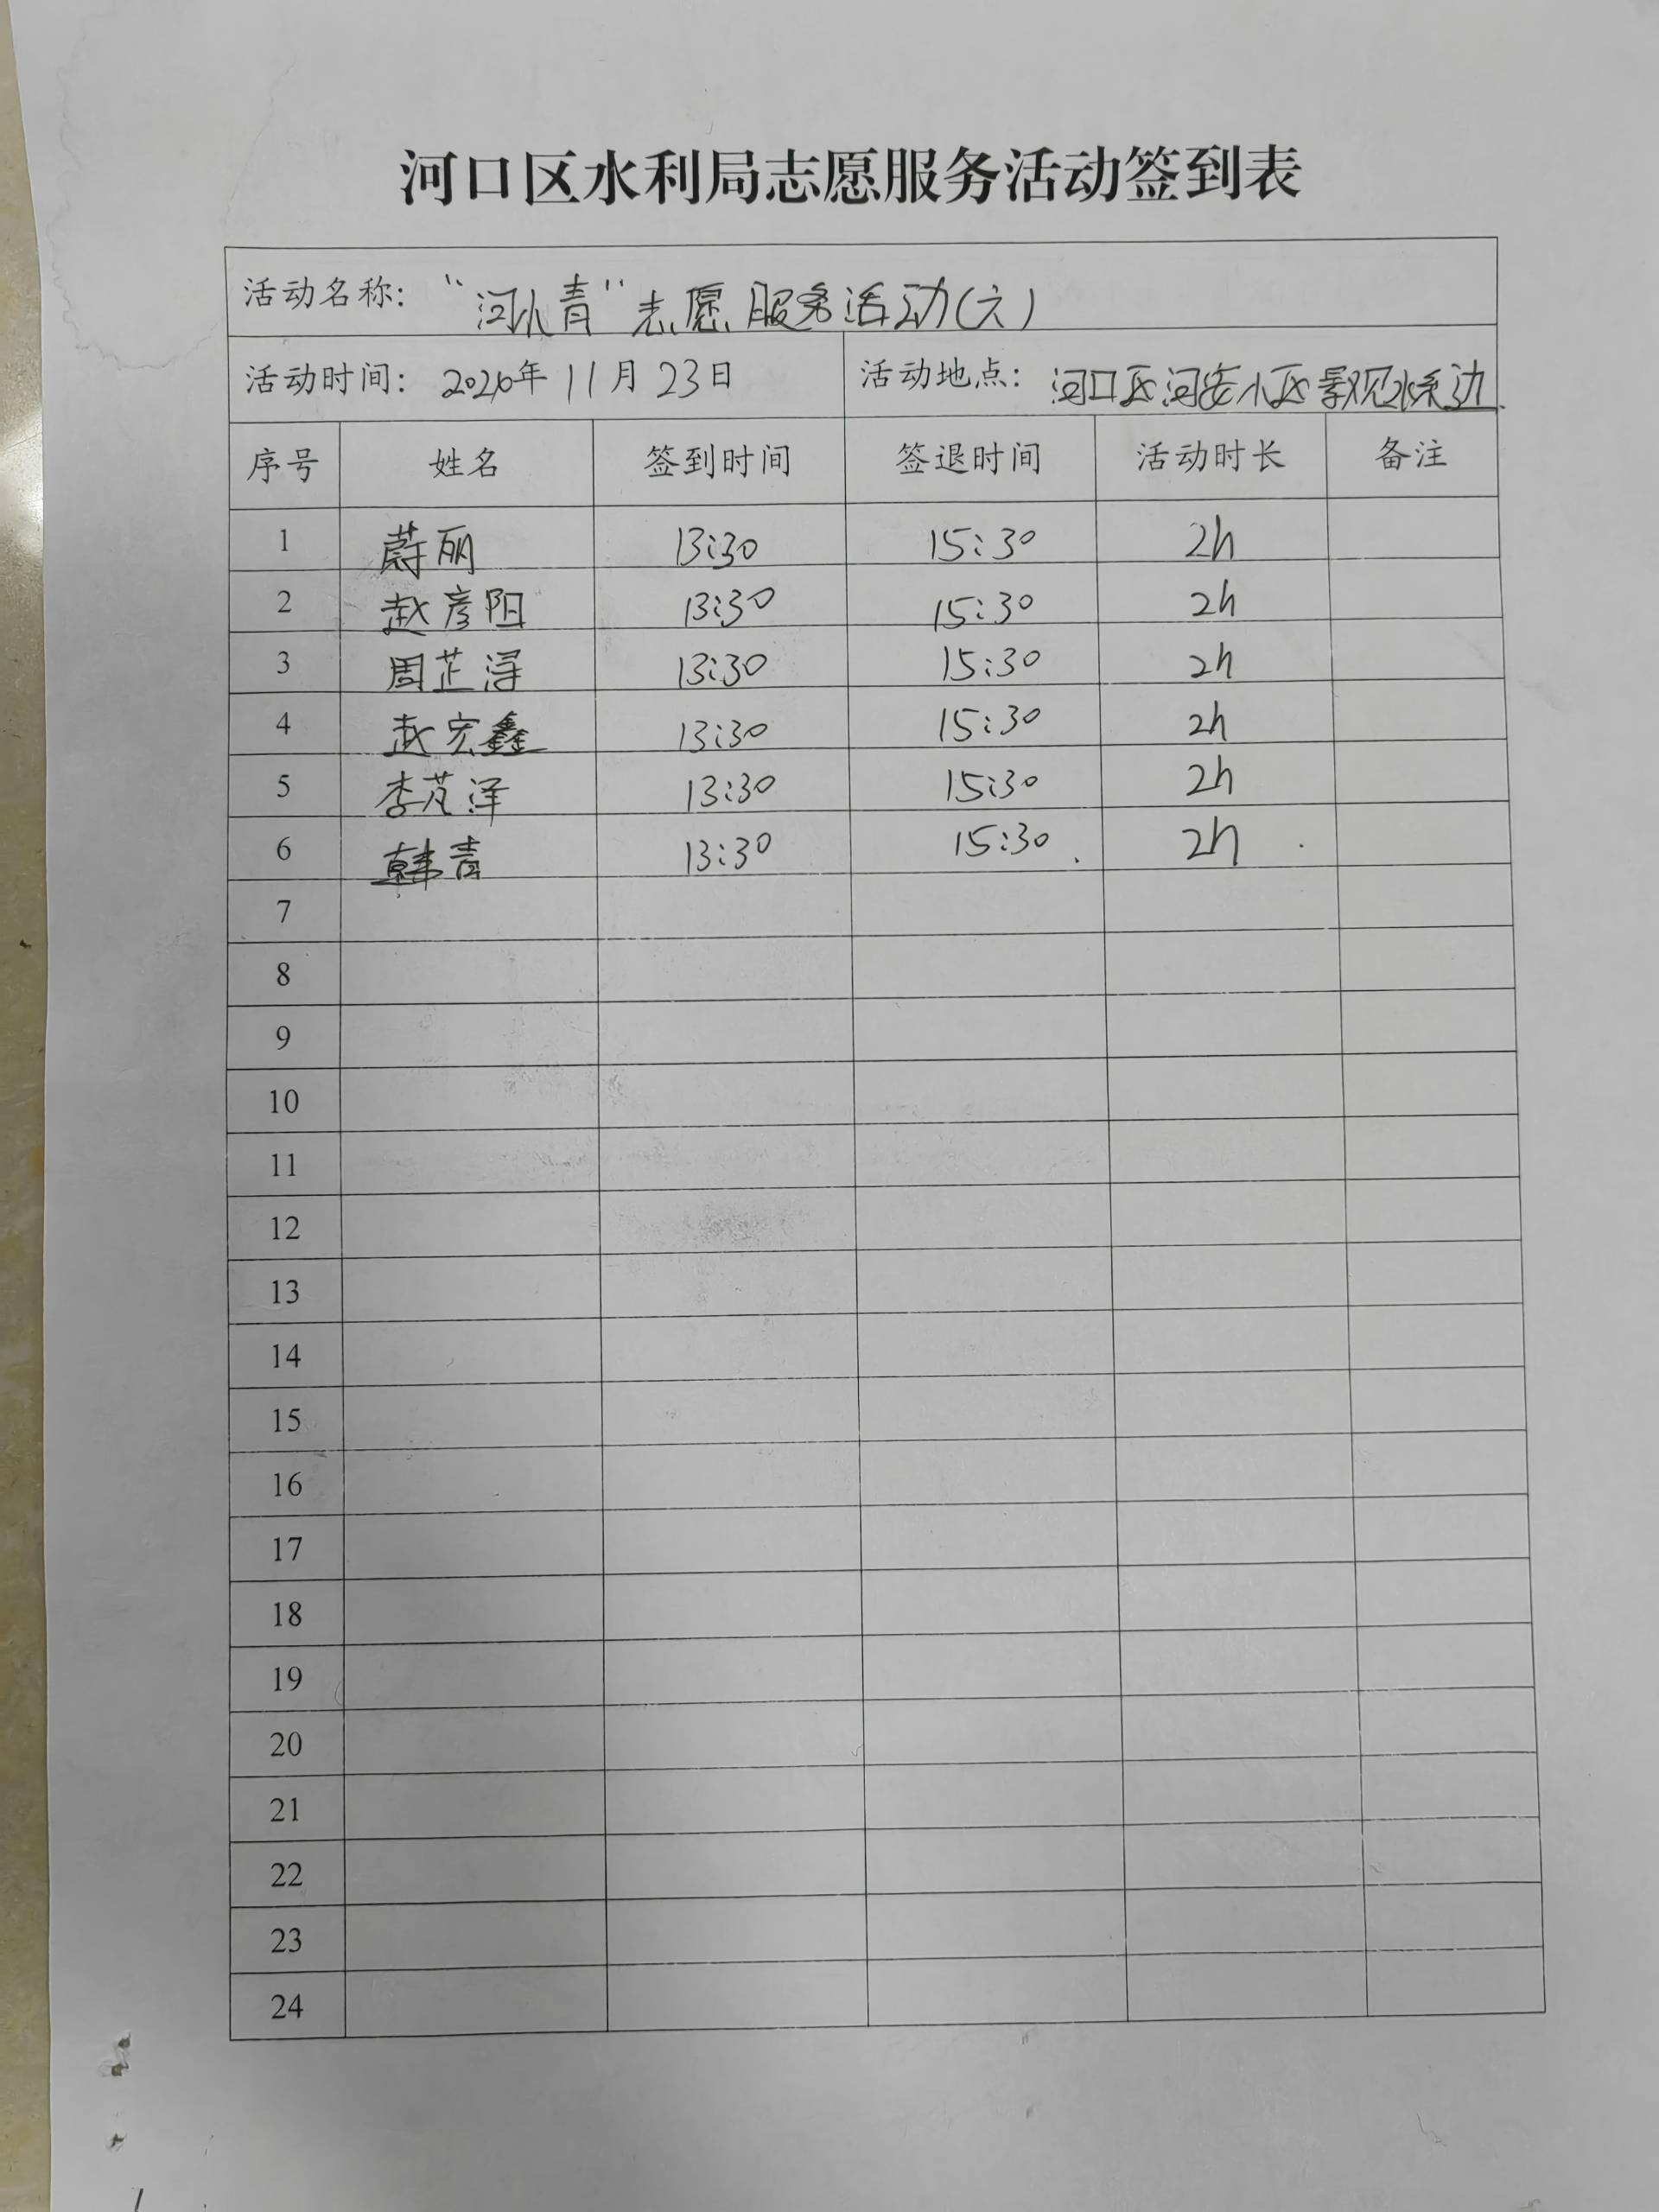 河口区水利局志愿服务活动签到表
活动名称："河小青"志愿服务活动(六)
活动时间：2020年11月23日 活动地点：河口区河安小区景观水系边
序号 姓名 签到时间 签退时间 活动时长 备注
1 蔚丽 13:30 15:30 2h
2 赵彦阳 13:30 15:30 2h
3 周芷浔 13:30 15:30 2h
4 赵宏鑫 13:30 15:30 2h
5 李芃泽 13:30 15:30 2h
6 韩青 13:30 15:30 2h
7
8
9
10
11
12
13
14
15
16
17
18
19
20
21
22
23
24